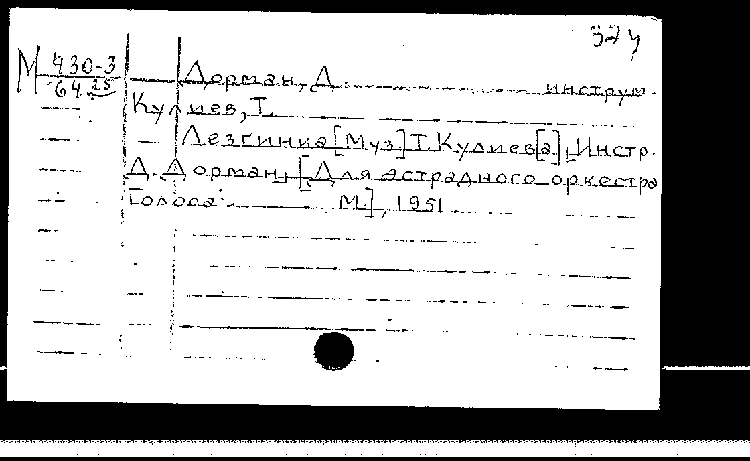 324
М 430-3
64 25
Дорман, Д. инструм.
Кулиев, Т.
Лезгинка [Муз] Т. Кулиев[а], Инстр.
Д. Дорман, [Для эстрадного оркестра
Голоса: М.], 1951